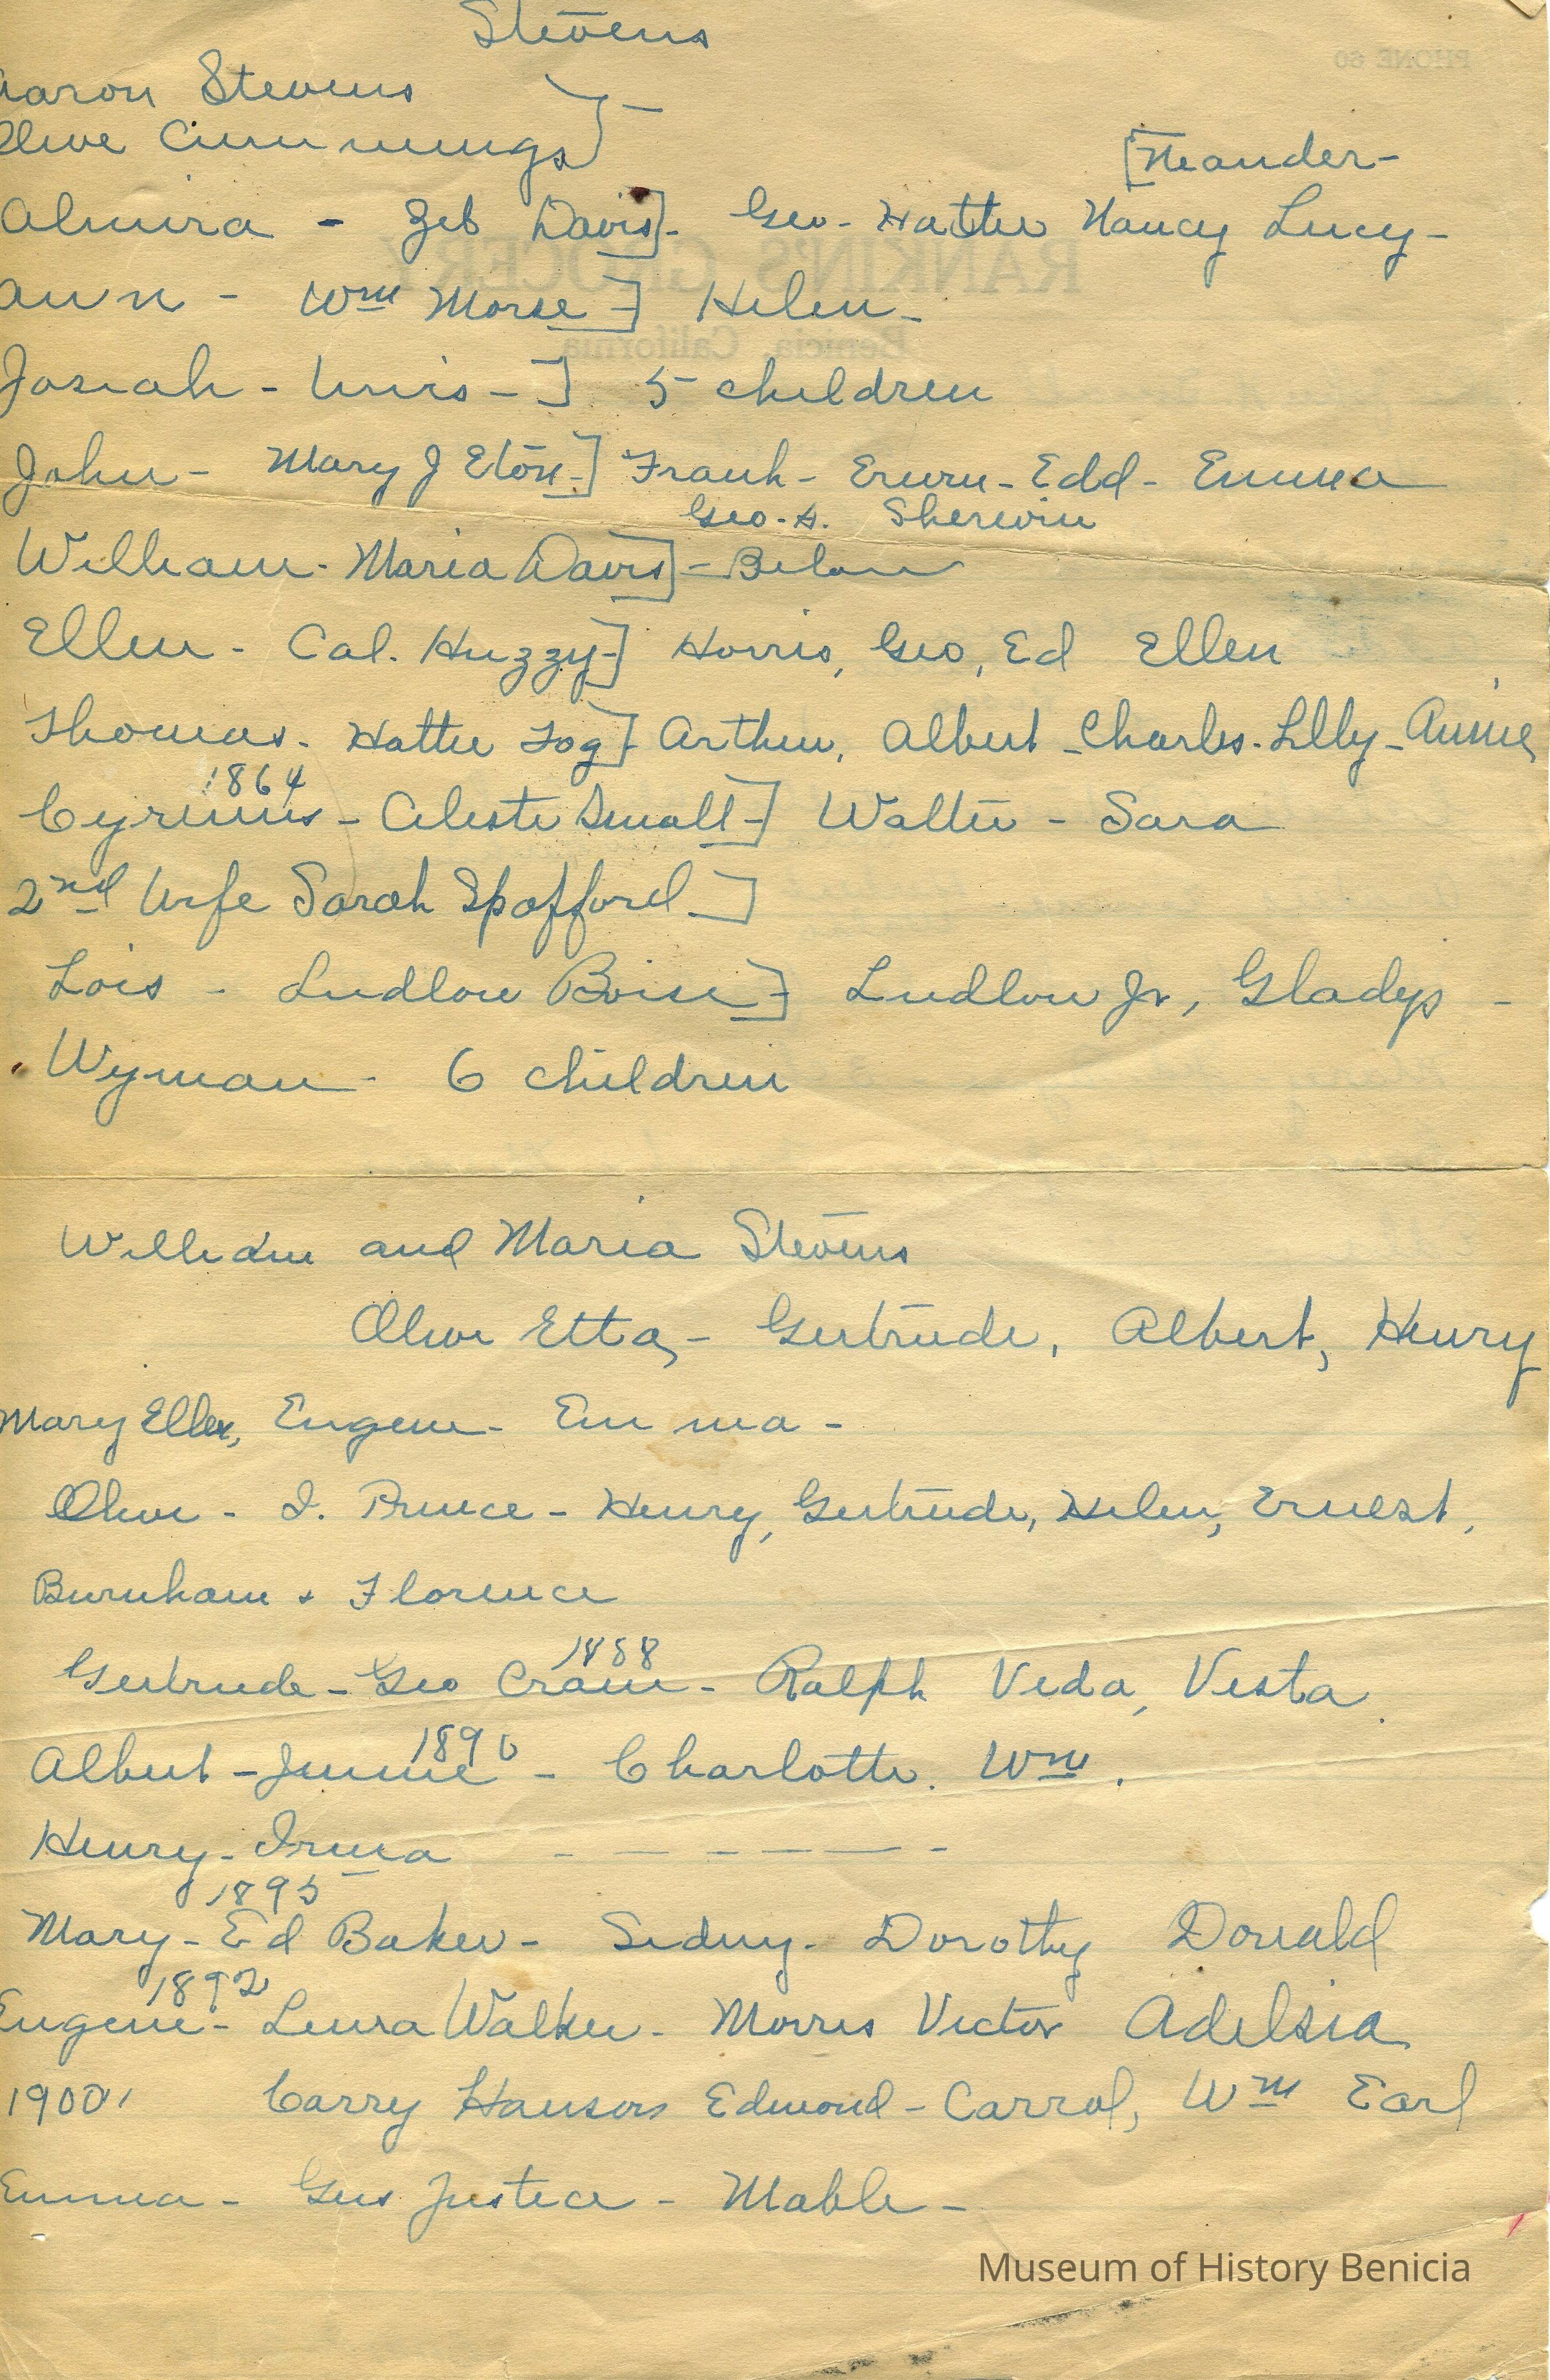 Stevens
PHONE 60
Aaron Stevens
Olive Cummings
[Neander-
Almira - Zeb Davis]- Geo- Hattie Nancy Lucy-
RANKIN'S GROCERY
Ann - Wm Morse-] Helen-
Benicia, California
Josiah - Unis-] 5 children
John- Mary J Eton-] Frank- Erwin- Edd- Emma
Geo. A. Sherwin
William- Maria Davis]- Below
Ellen- Cal. Huzzy-] Horris, Geo, Ed Ellen
Thomas- Hattie Fog] Arthur, Albert-Charles-Lilly-Annie,
1864
- Celeste Small-] Walter - Sara
2nd Wife Sarah Spofford-]
Lois - Ludlow Boise-] Ludlow Jr, Gladys -
Wyman- 6 children
William and Maria Stevens
Olive Etta,- Gertrude, Albert, Henry
Mary Ellen, Eugene- Emma-
Olive- I. Prince- Henry, Gertrude, Helen, Ernest,
Burnham + Florence
1888
Gertrude-Geo Cram- Ralph Veda, Vesta
1890
Albert-Jennie - Charlotte. Wm.
Henry- Irma - - - - - -
1895
Mary- Ed Baker- Sidney- Dorothy Donald
1892
Eugene- Laura Walker- Morris Victor Adelsia
1900 Carry Hanson Edmond-Carrol, Wm Earl
Emma- Gus Justice- Mable-
Museum of History Benicia